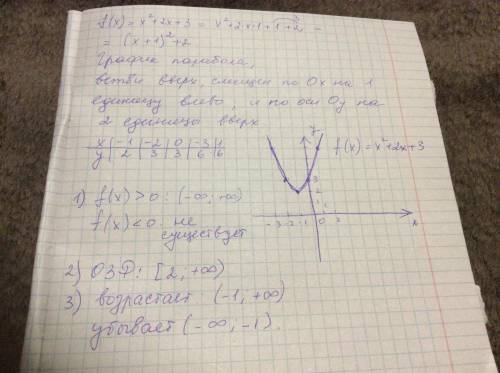 f(x) = x²+2x+3 = x²+2·x·1+1+2 =
= (x+1)²+2
График парабола,
ветви вверх, смещен по Ox на 1
единицу влево, и по оси Oy на
2 единицы вверх
x | -1 | -2 | 0 | -3 | 1
y | 2 | 3 | 3 | 6 | 6
y
f(x)=x²+2x+3
3
2
1
-3 -2 -1 0 1 2 x
1) f(x)>0 : (-∞; +∞)
f(x)<0 не
существует
2) ОЗФ: [2; +∞)
3) возрастает (-1; +∞)
убывает (-∞; -1).